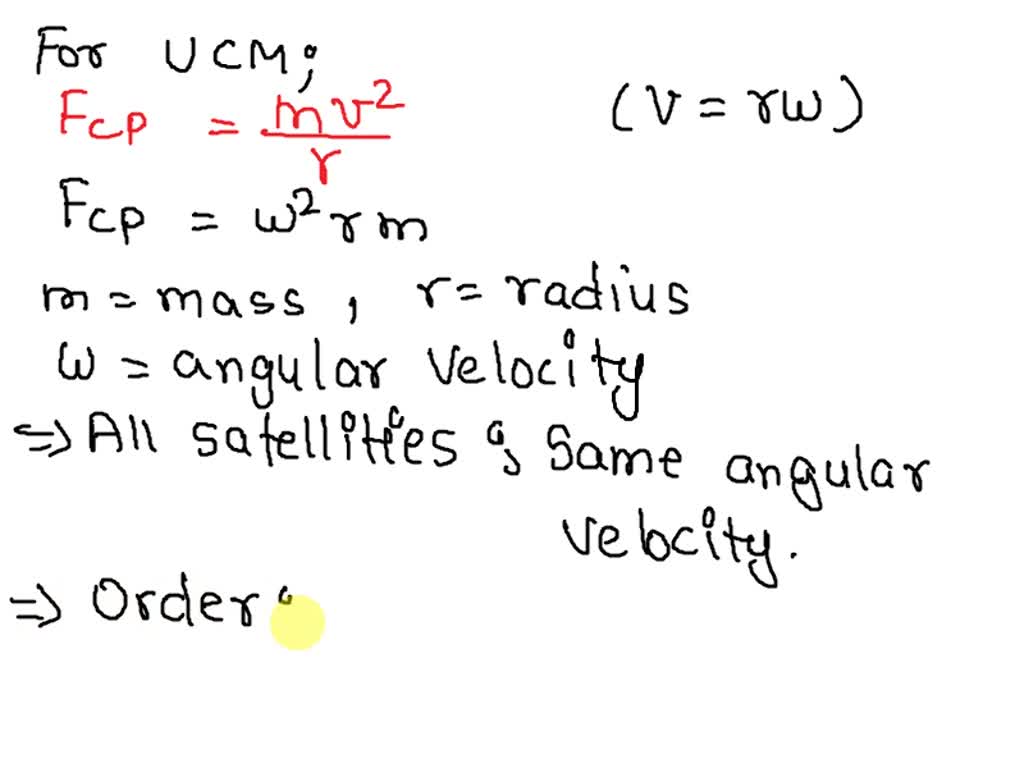 For UCM;
Fcp = mv²/r (v = rω)
Fcp = ω² r m
m = mass, r = radius
ω = angular velocity
⇒ All satellities ; Same angular
velocity.
⇒ Order :